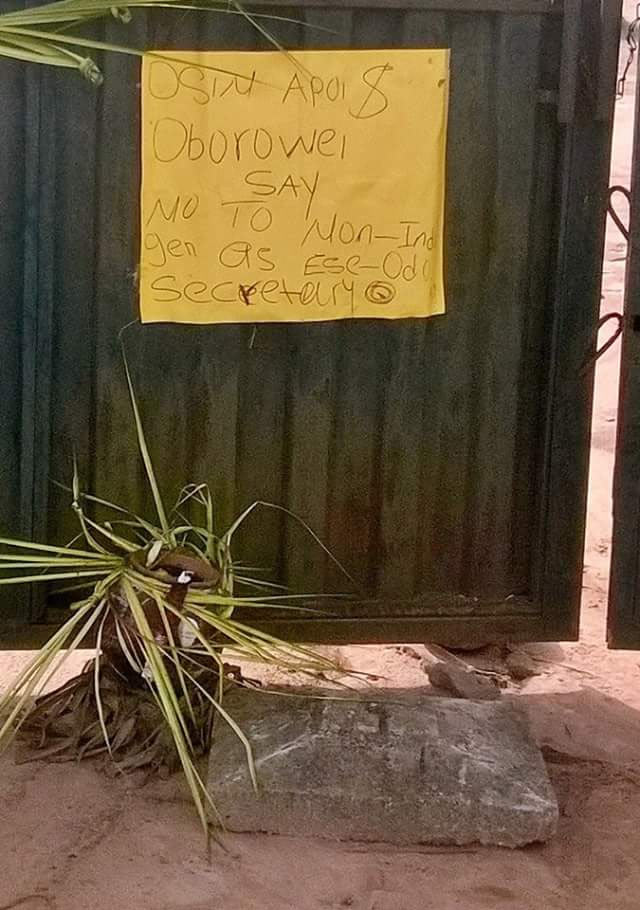 OSIM APOI $
Oborowei
SAY
NO TO Non-Ind
gen as Ese-Odo
Secretary @